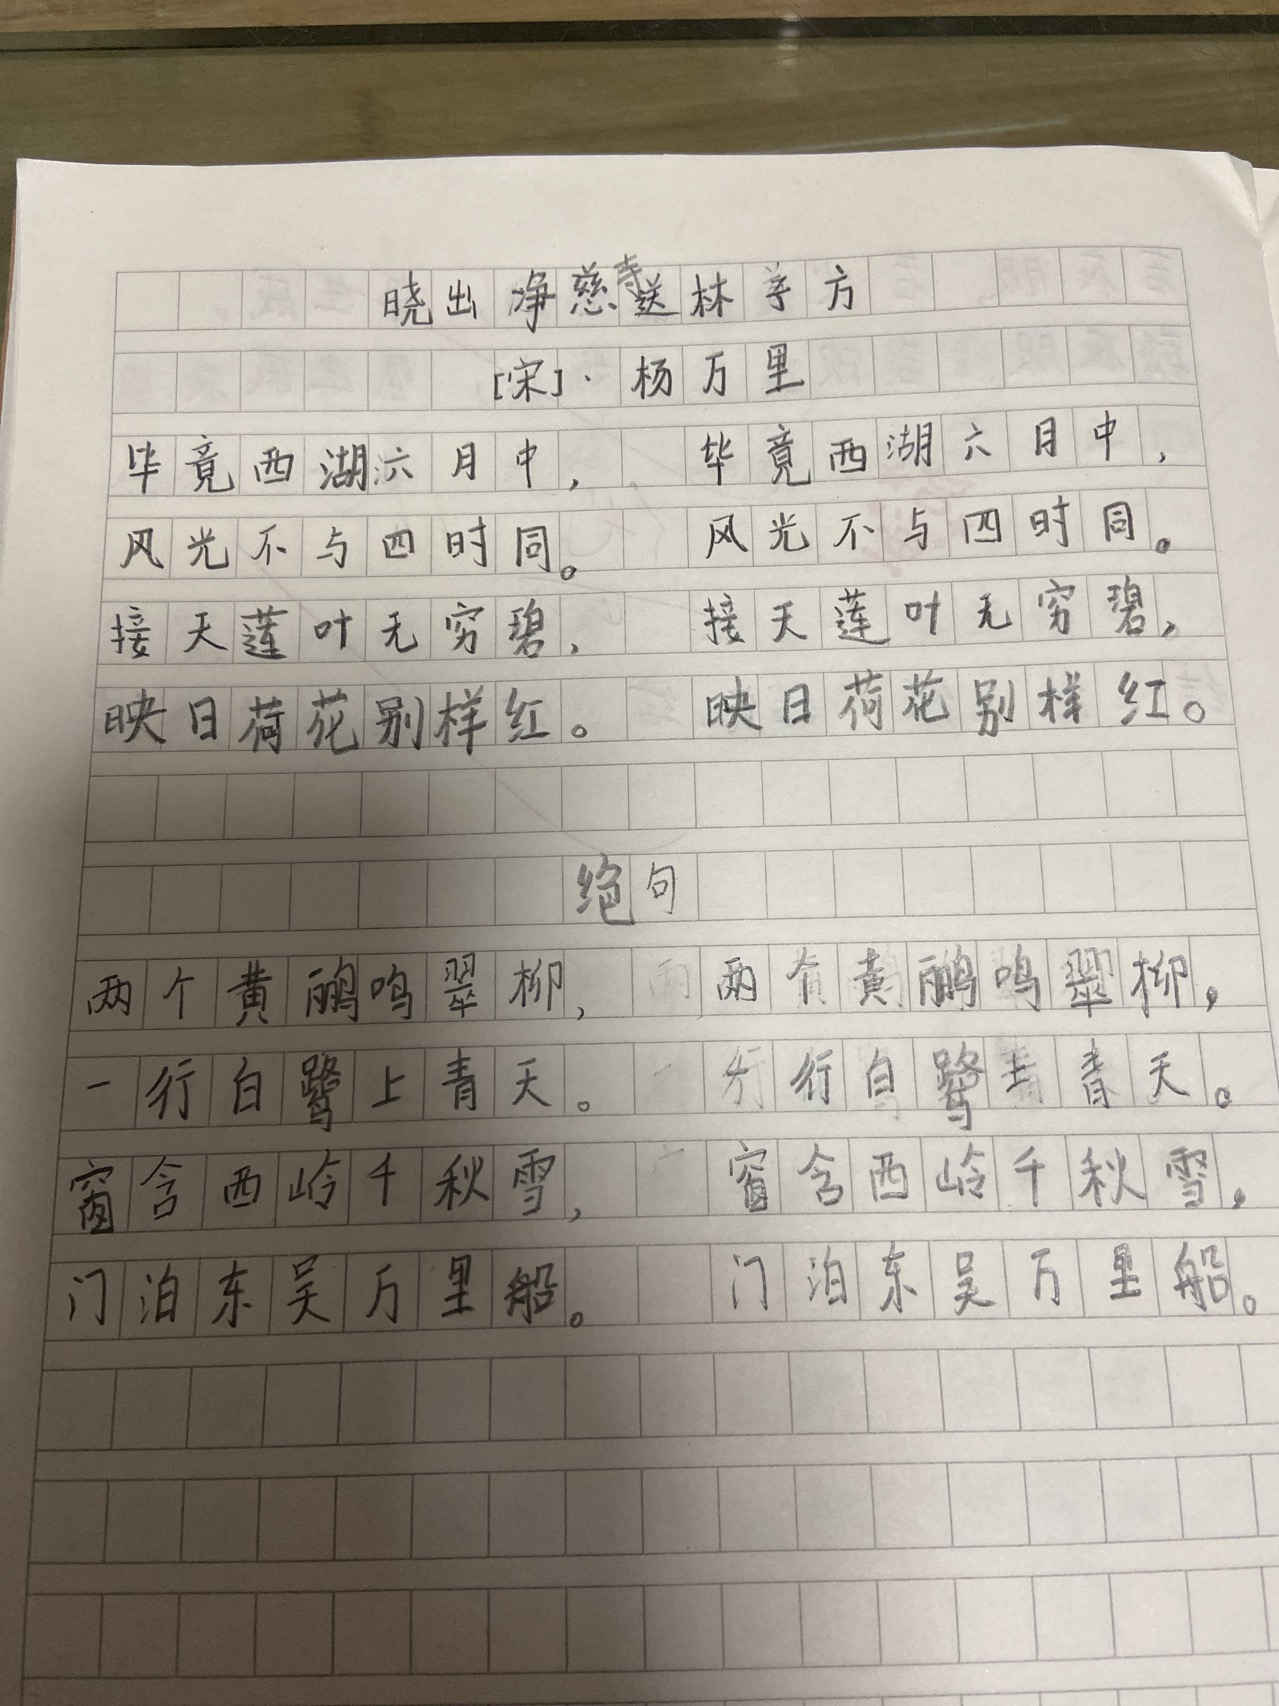 晓出净慈寺送林子方
[宋]·杨万里
毕竟西湖六月中， 毕竟西湖六月中，
风光不与四时同。 风光不与四时同。
接天莲叶无穷碧， 接天莲叶无穷碧，
映日荷花别样红。 映日荷花别样红。
绝句
两个黄鹂鸣翠柳， 两个黄鹂鸣翠柳，
一行白鹭上青天。 一行白鹭上青天。
窗含西岭千秋雪， 窗含西岭千秋雪，
门泊东吴万里船。 门泊东吴万里船。